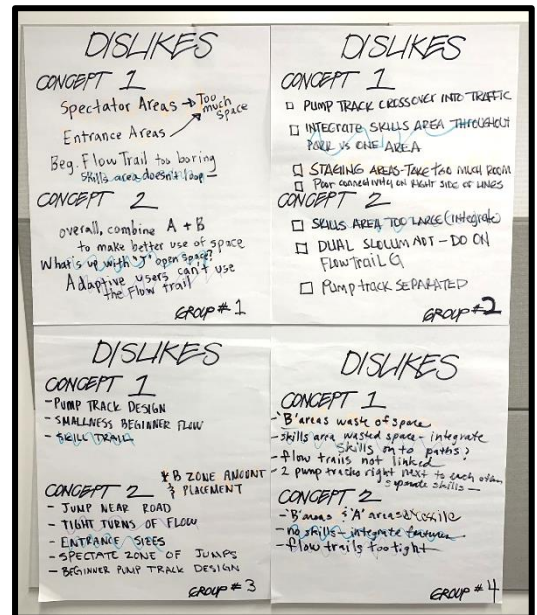 DISLIKES
CONCEPT 1
Spectator Areas → Too much space
Entrance Areas
Beg. Flow Trail too boring
skills area doesn't loop —
CONCEPT 2
overall, combine A + B
to make better use of space
What's up with "J" open space?
Adaptive users can't use
the Flow trail
GROUP # 1
DISLIKES
CONCEPT 1
□ PUMP TRACK CROSSOVER INTO TRAFFIC
□ INTEGRATE SKILLS AREA THROUGHOUT
PARK VS ONE AREA
□ STAGING AREAS-TAKE TOO MUCH ROOM
□ POOR CONNECTIVITY ON RIGHT SIDE OF LINES
CONCEPT 2
□ SKILLS AREA TOO LARGE (integrate)
□ DUAL SLOLUM NOT - DO ON
FLOWTRAIL G
□ PUMPTRACK SEPARATED
GROUP #2
DISLIKES
CONCEPT 1
- PUMP TRACK DESIGN
- SMALLNESS BEGINNER FLOW
- SKILL TRAIL
CONCEPT 2
* B ZONE AMOUNT
& PLACEMENT
- JUMP NEAR ROAD
- TIGHT TURNS OF FLOW
- ENTRANCE SIZES
- SPECTATE ZONE OF JUMPS
- BEGINNER PUMP TRACK DESIGN
GROUP # 3
DISLIKES
CONCEPT 1
- "B" areas waste of space
- skills area wasted space - integrate
skills on to paths?
- flow trails not linked
- 2 pump tracks right next to each other
seperate skills —
CONCEPT 2
- "B" areas & "A" areas
- no skills - integrate features
- flow trails too tight
GROUP # 4